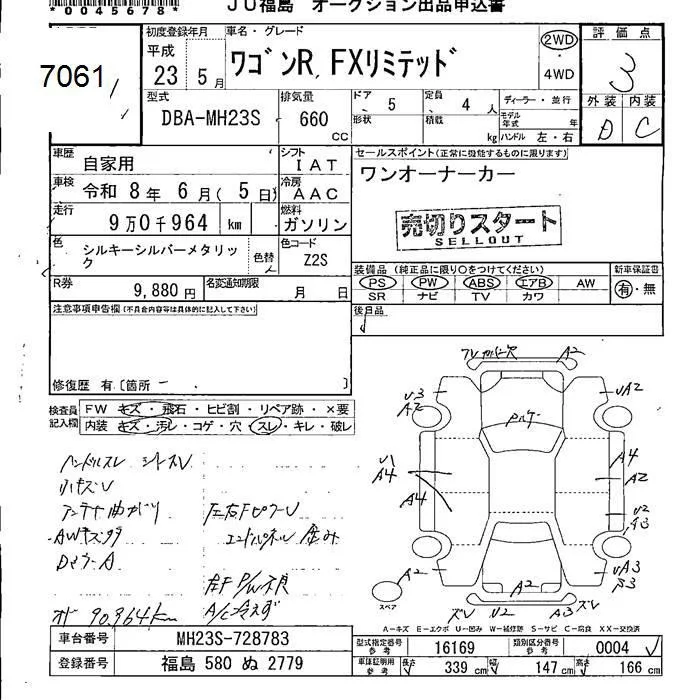 *0045678*
JU福島 オークション出品申込書
7061
初度登録年月
平成
23 5月
車名・グレード
ワゴンR FXリミテッド
2WD
・
4WD
評価点
3
外装 内装
D C
型式
DBA-MH23S
排気量
660 CC
ドア
5
形状
定員
4 人
積載
kg
ディーラー・並行
モデル年式 年
ハンドル 左・右
車歴
自家用
シフト
IAT
車検
令和 8年 6月(5日)
冷房
AAC
走行
9万0千964 km
燃料
ガソリン
色
シルキーシルバーメタリック
色替
色コード
Z2S
R券
9,880円
名変通知期限
月 日
セールスポイント(正常に機能するものに限ります)
ワンオーナーカー
売切りスタート
SELLOUT
装備品(純正品に限り○をつけてください)
PS PW ABS エアB AW
SR ナビ TV カワ
新車保証書
有・無
後日品
注意事項申告欄(不具合内容等は具体的に記入して下さい)
修復歴 有〔箇所 、 、 〕
検査員記入欄
FW キズ・飛石・ヒビ割・リペア跡・×要
内装 キズ・汚レ・コゲ・穴・スレ・キレ・破レ
ハンドルスレ シートスU
リヤキズU
アンテナ曲がり
AWキズ
左右FピラーU
左F P/W不良
A/C冷えず
オド 90,964km
A2
U3
A2
UA2
U1
A4
A4
A4
A2
U2
A3
A2
A2
UA3
ズU
U2
A3
ズU
スペア
A-キズ E-エクボ U-凹み W-補修跡 S-サビ C-腐食 XX-交換済
車台番号
MH23S-728783
登録番号
福島 580 ぬ 2779
型式指定番号
参考
16169
類別区分番号
参考
0004
車庫証明用
参考
長さ 339 cm 幅 147 cm 高さ 166 cm